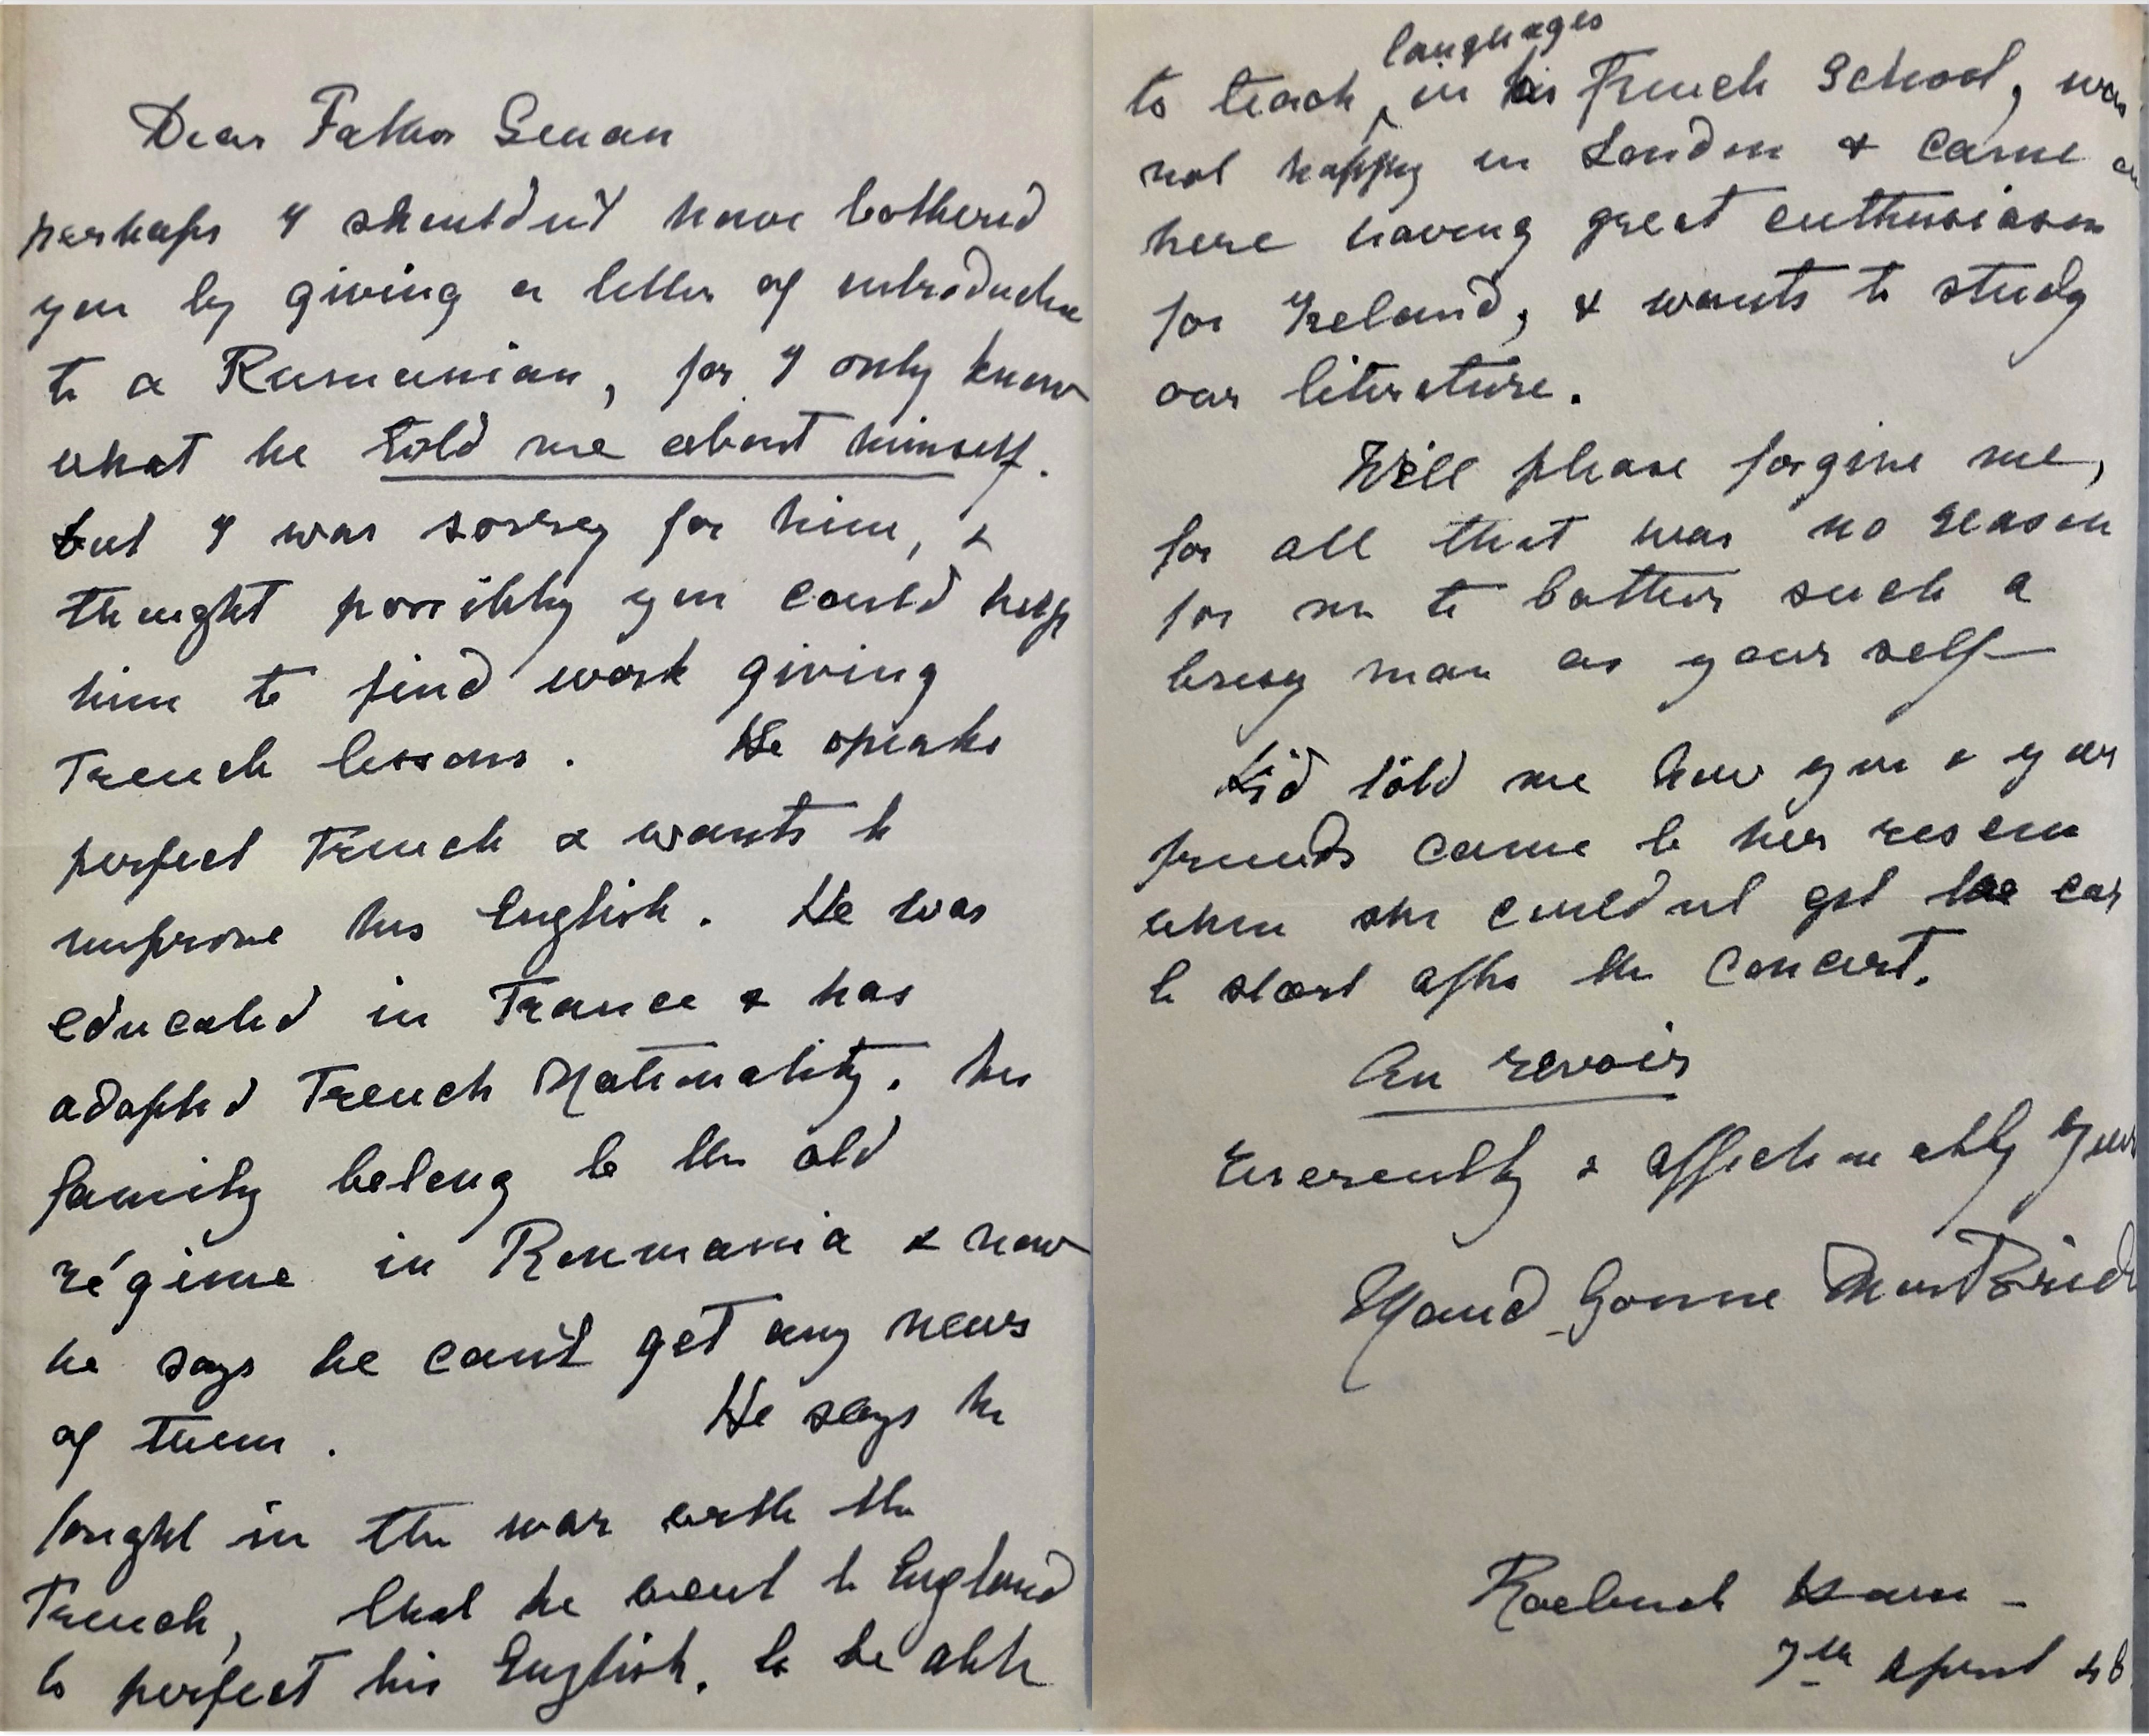 Dear Father Senan
perhaps I shouldn't have bothered
you by giving a letter of introduction
to a Rumanian, for I only know
what he told me about himself.
but I was sorry for him, &
thought possibly you could help
him to find work giving
French lessons. He speaks
perfect French & wants to
improve his English. He was
educated in France & has
adopted French Nationality. his
family belong to the old
régime in Roumania & now
he says he can't get any news
of them. He says he
fought in the war with the
French, that he went to England
to perfect his English. to be able
languages
to teach in his French School, was
not happy in London & came
here having great enthusiasm
for Ireland, & wants to study
our literature.
Will please forgive me,
for all that was no reason
for me to bother such a
busy man as yourself
Kid told me how you & your
friends came to her rescue
when she couldn't get the car
to start after the Concert.
Au revoir
Reverently & affectionately Yours
Maud Gonne MacBride
Roebuck House
7th April 48